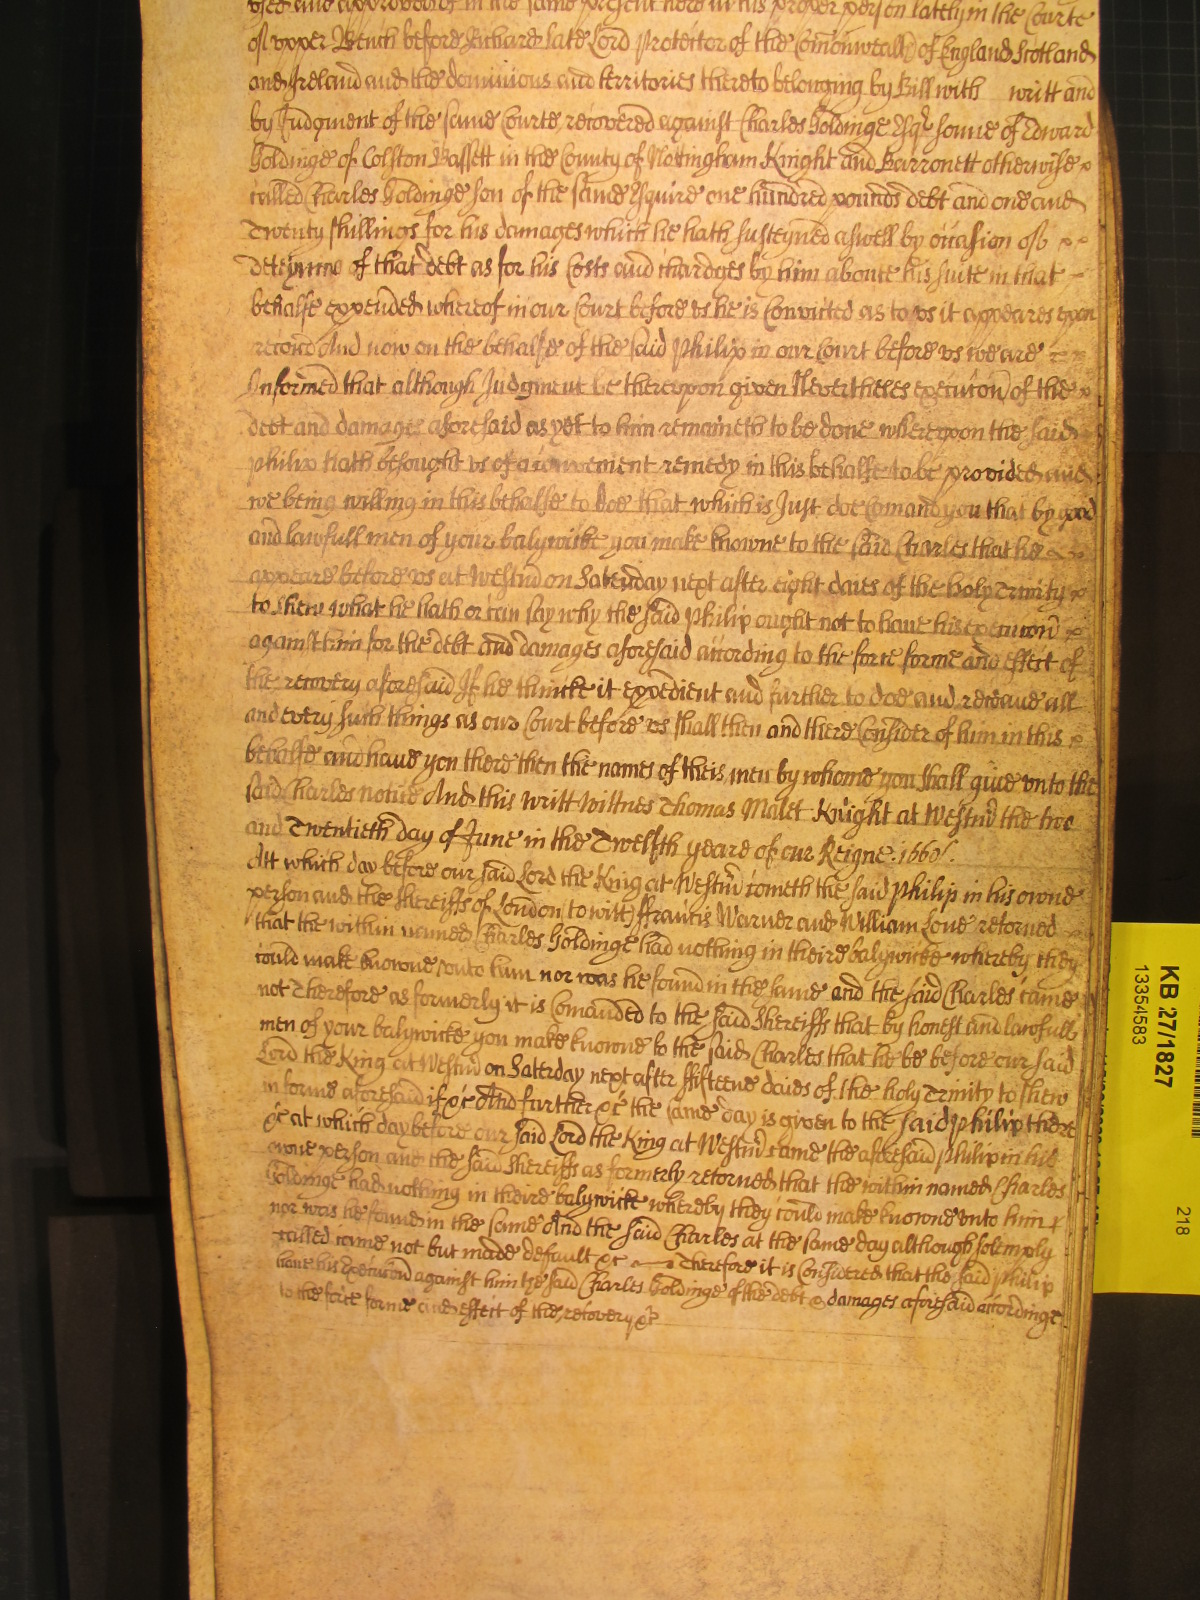 used and approved of in the same present here in his proper person lately in the Courte
of vpper Bench before Richard late Lord Protector of the Comonwealth of England Scotland
and Ireland and the dominions and territories thereto belonging by Bill with writt and
by Judgment of the same Courte recovered against Charles Goldinge Esqr sonne of Edward
Goldinge of Colston Bassett in the County of Nottingham Knight and Barronett otherwise
called Charles Goldinge son of the same Esquire one hundred pounds debt and one and
Twenty shillings for his damages which he hath susteyned aswell by occasion of
deteyninge of that debt as for his Costs and chardges by him aboute his suite in that
behalfe expended whereof in our Court before vs he is Convicted as to vs it appeares vpon
record And now on the behalfe of the said Philip in our Court before vs we are
Informed that although Judgment be therevpon given Neverthelesse execucon of the
debt and damages aforesaid as yet to him remaineth to be done wherevpon the said
Philip hath besought vs of a convenient remedy in this behalfe to be provided and
we being willing in this behalfe to doe that which is Just doe Comand you that by good
and lawfull men of your balywicke you make knowne to the said Charles that he
appeare before vs at Westm on Saterday next after eight daies of the holy Trinity
to shew what he hath or can say why the said Philip ought not to haue his execucon
against him for the debt and damages aforesaid according to the force forme and effect of
the recovery aforesaid If he thincke it expedient and further to doe and receaue all
and every such things as our Court before vs shall then and there Consider of him in this
behalfe and haue you there then the names of theis men by whome you shall giue vnto the
said Charles notice And this writt Wittnes Thomas Malet Knight at Westm the two
and Twentieth day of June in the Twelfth yeare of our Reigne. 1660.
Att which day before our said Lord the King at Westm cometh the said Philip in his owne
person and the Shereiffs of London (to witt) ffrancis Warner and William Love retorned
that the within named Charles Goldinge had nothing in theire balywicke whereby they
could make knowne vnto him nor was he found in the same and the said Charles came
not Therefore as formerly it is comanded to the said Shereiffs that by honest and lawfull
men of your balywicke you make knowne to the said Charles that he be before our said
Lord the King at Westm on Saterday next after ffifteene daies of the holy Trinity to shew
in forme aforesaid if &c And further &c the same day is given to the said Philip there
&c at which day before our said Lord the King at Westm came the aforesaid Philip in his
owne person and the said Shereiffs as formerly retorned that the within named Charles
Goldinge had nothing in theire balywicke whereby they could make knowne vnto him
nor was he found in the same And the said Charles at the same day although solemply
called came not but made default &c Therefore it is Considered that the said Philip
haue his execucon against him the said Charles Goldinge of the debt & damages aforesaid accordinge
to the force forme and effect of the recovery &c
KB 27/1827
13354583
218